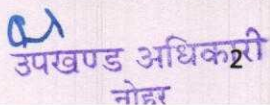 उपखण्ड अधिकारी
2
नोहर